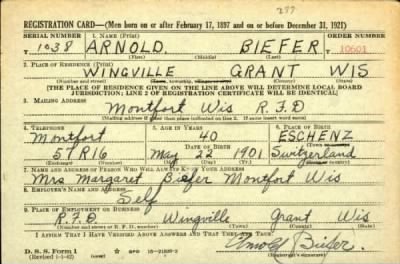 277
REGISTRATION CARD—(Men born on or after February 17, 1897 and on or before December 31, 1921)
SERIAL NUMBER 1. NAME (Print) ORDER NUMBER
T 1038 ARNOLD. BIEFER 10601
(First) (Middle) (Last)
2. PLACE OF RESIDENCE (Print)
WINGVILLE GRANT WIS
(Number and street) (Town, township, village, or city) (County) (State)
[THE PLACE OF RESIDENCE GIVEN ON THE LINE ABOVE WILL DETERMINE LOCAL BOARD
JURISDICTION; LINE 2 OF REGISTRATION CERTIFICATE WILL BE IDENTICAL]
3. MAILING ADDRESS
Montfort Wis R.F.D
[Mailing address if other than place indicated on line 2. If same insert word same]
4. TELEPHONE 5. AGE IN YEARS 6. PLACE OF BIRTH
Montfort 40 ESCHENZ
DATE OF BIRTH (Town or county)
57R16 May 22 1901 Switzerland
(Exchange) (Number) (Mo.) (Day) (Yr.) (State or country)
7. NAME AND ADDRESS OF PERSON WHO WILL ALWAYS KNOW YOUR ADDRESS
Mrs Margaret Biefer Montfort Wis
8. EMPLOYER'S NAME AND ADDRESS
Self
9. PLACE OF EMPLOYMENT OR BUSINESS
R.F.D. Wingville Grant Wis
(Number and street or R. F. D. number) (Town) (County) (State)
I AFFIRM THAT I HAVE VERIFIED ABOVE ANSWERS AND THAT THEY ARE TRUE.
D. S. S. Form 1
(Revised 1-1-42) (over) GPO Arnold Biefer.
(Registrant's signature)